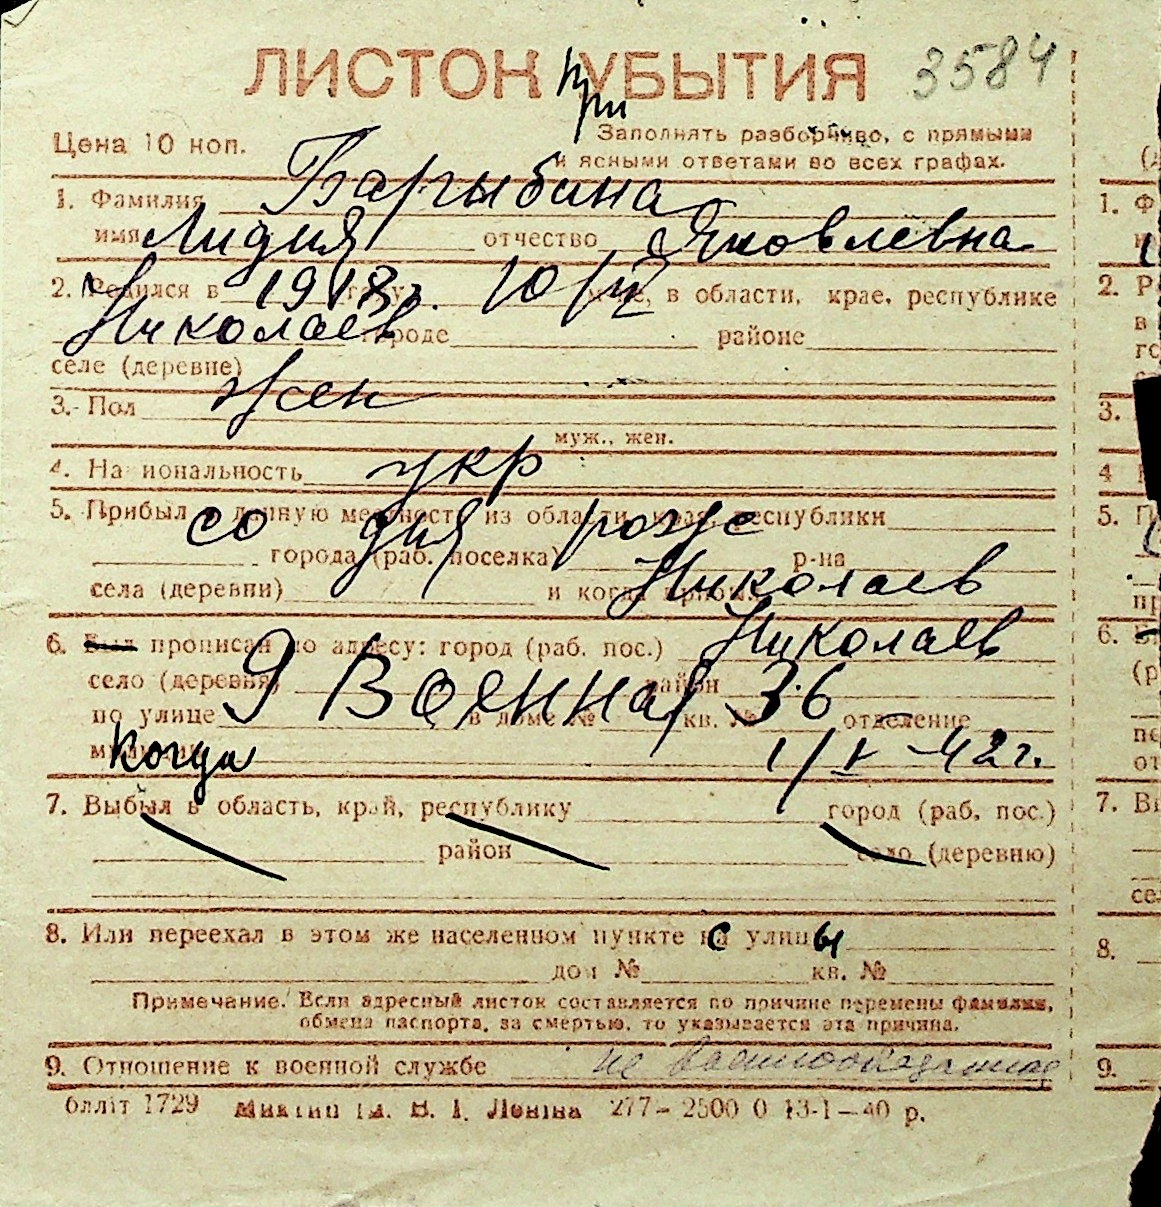 ЛИСТОК УБЫТИЯ 3584
при
Цена 10 коп.
Заполнять разборчиво, с прямыми
и ясными ответами во всех графах.
1. Фамилия Барыбина
имя Лидия отчество Яковлевна
2. Родился в 1918 г. 10/III, в области, крае, республике
Николаев городе районе
селе (деревне)
3. Пол жен
муж., жен.
4. На иональность укр
5. Прибыл в данную местность из области, края, республики
со дня рожд
города (раб. поселка) р-на
села (деревни) и когда Николаев
6. Был прописан по адресу: город (раб. пос.) Николаев
село (деревня) район
9 Военная 36
по улице в доме № кв. № отделение
Когда 1/V-42 г.
7. Выбыл в область, край, республику город (раб. пос.)
район село (деревню)
8. Или переехал в этом же населенном пункте с улицы
дом № кв. №
Примечание. Если адресный листок составляется по причине перемены фамилии,
обмена паспорта, за смертью, то указывается эта причина.
9. Отношение к военной службе не военнообязанная
обліт 1729 В. І. Леніна 277–2500 0 13-1–40 р.
1. Ф
2. Р
в
го
3.
4
5. П
6.
(р
пе
от
7. Вы
се
8.
9.